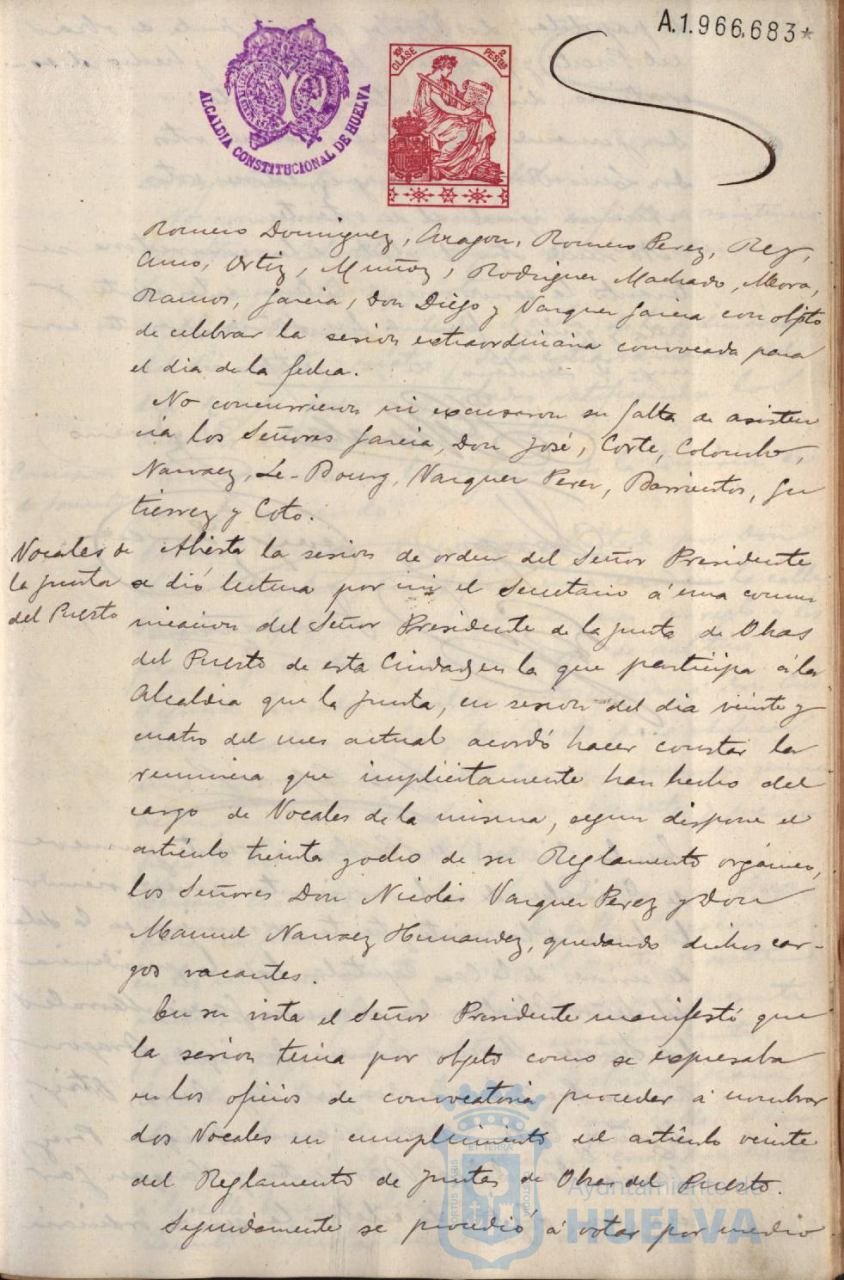 A.1.966,683*
10ª CLASE 2 PESTAS
ALCALDIA CONSTITUCIONAL DE HUELVA
Romero Dominguez, Aragon, Romero Perez, Rey,
Amo, Ortiz, Muñoz, Rodriguez Machado, Mora,
Ramos, Garcia, Don Diego y Vazquez Garcia con objeto
de celebrar la sesion extraordinaria convocada para
el dia de la fecha.
No concurrieron ni excusaron su falta de asisten
cia los Señores Garcia, Don José, Corte, Colombo,
Narvaez, Le-Bourg, Vazquez Perez, Barrientos, Gu
tierrez y Coto.
Vocales de
la Junta
del Puerto
Abierta la sesion de orden del Señor Presidente
se dió lectura por mi el Secretario á una comu
nicacion del Señor Presidente de la Junta de Obras
del Puerto de esta Ciudad, en la que participa á la
Alcaldia que la Junta, en sesion del dia veinte y
cuatro del mes actual acordó hacer constar la
renuncia que implicitamente han hecho del
cargo de Vocales de la misma, segun dispone el
artículo treinta y ocho de su Reglamento orgánico,
los Señores Don Nicolás Vazquez Perez y Don
Manuel Narvaez Hernandez, quedando dichos car-
gos vacantes.
En su vista el Señor Presidente manifestó que
la sesion tenia por objeto como se expresaba
en los oficios de convocatoria proceder á nombrar
dos Vocales en cumplimiento del artículo veinte
del Reglamento de Juntas de Obras del Puerto.
Seguidamente se procedió á votar por medio
Ayuntamiento de
HUELVA